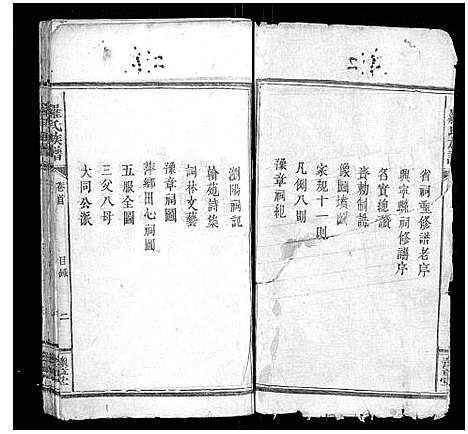 省祠重修譜老序
興寧縣祠修譜序
名實總讚
喪勅制誥
像圖墳圖
家規十一則
凡例八則
豫章祠紀
瀏陽祠記
翰苑詩集
詞林文藝
豫章祠圖
萍鄉田心祠圖
五服全圖
三父八母
大同公派
羅氏族譜
卷首
目錄
二
豫章堂